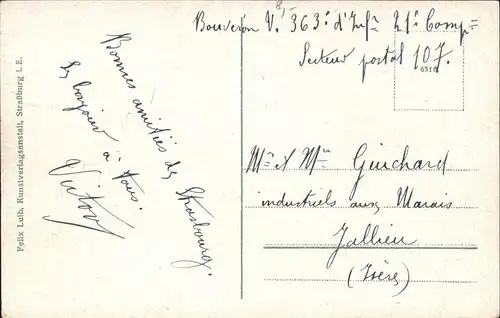 8,-
Bouveron V. 363e d'Infie 21e Compie
Secteur postal 107.
6318
Bonnes amitiés de Strasbourg.
Le bonjour à tous.
Victor
Mr et Mme Guichard
industriels aux Marais
Jallieu
(Isère)
Felix Luib, Kunstverlagsanstalt, Straßburg i. E.